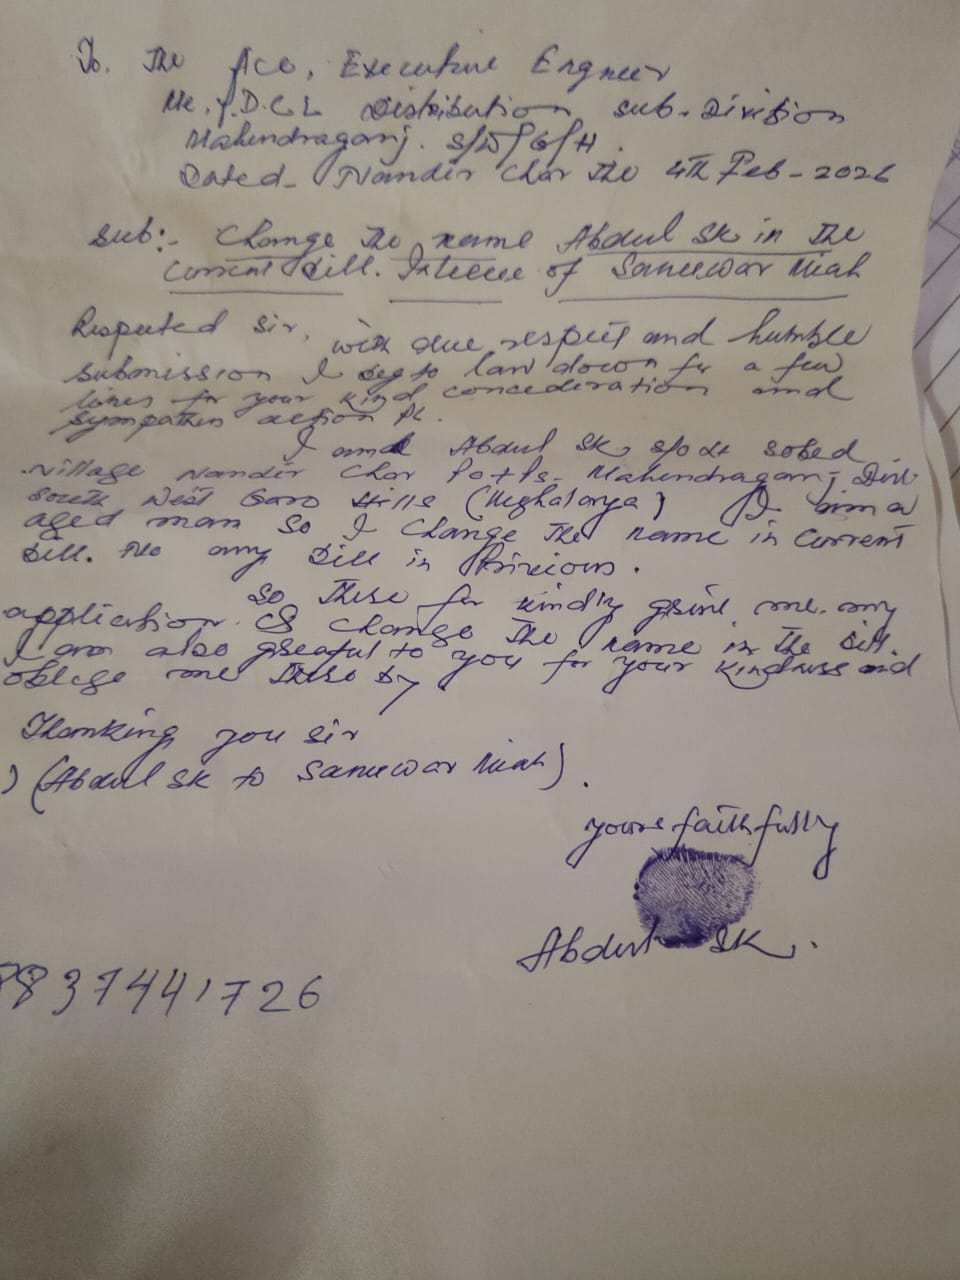 To. The Ace, Executive Engneer
Me.P.D.C.L Distribution sub-Division
Mahendraganj. S/W/G/H.
Dated- Nandir Char the 4th Feb-2026
Sub:- Change the name Abdul Sk in the
Current Bill. Inteeue of Sanuwar Miah
Respected Sir, with due respect and humble
submission I beg to law down few a few
lines for your kind concederation and
sympathes action pl.
I am Abdul Sk s/o Lt Sobed
village Nandir Char Po+Ps. Mahendraganj Dist
South West Garo Hills (Meghalaya) I am a
aged man so I change the name in Current
Bill. No any Bill in Privious.
So there for kindly me. my
application & change the name in the Bill.
I am also greaful to you for your kindness and
oblege me there by
Thanking you sir
) (Abdul Sk to Sanuwar Miah).
yours faithfully
Abdul SK.
8837441726